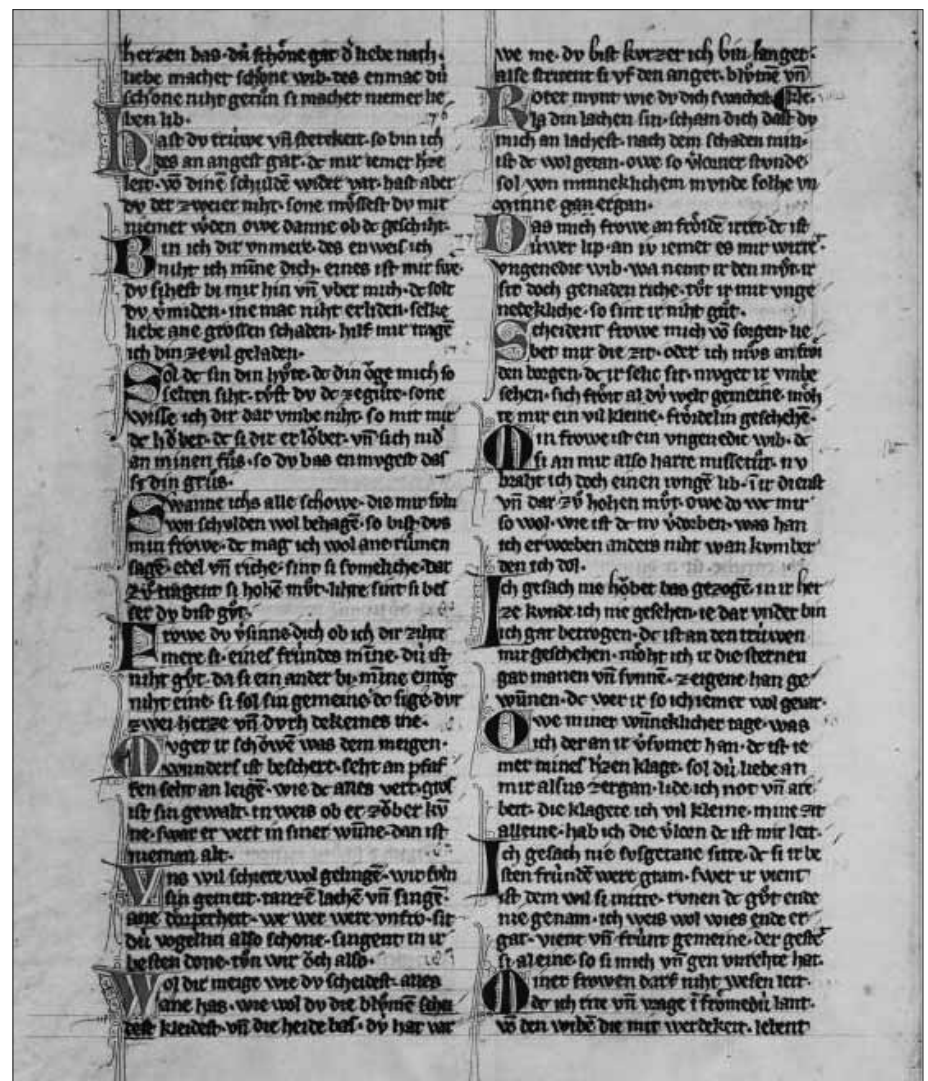 herzen bas · dú schône gat d̓ liebe nach ·
liebe machet schône wib · des enmac dú
schône niht getůn si machet niemer lie
ben lib ·
Hast dv trúwe vñ stetekeit · so bin ich
des an angest gar · dc mir iemer h̓ze
leit · vō dinē schuldē wider var · hast aber
dv der zweier niht · sone mv̊ssest dv mir
niemer w̓den owe danne ob dc geschiht ·
Bin ich dir vnmere · des enweis ich
niht ich mīne dich · eines ist mir swe
dv sihest bi mir hin vñ vber mich · dc solt
dv v̓miden · ine mac niht erliden · selke
liebe ane grossen schaden · hilf mir tragē
ich bin ze vil geladen ·
Sol dc sin din hv̊te · dc din ôge mich so
selten siht · tv̊st dv dc ze gůte · sone
wisse ich dir dar vmbe niht · so mit mir
dc hôbet · dc si dir erlôbet · vñ sich nid̓
an minen fůs · so dv bas enmvgest das
si din grůs ·
Swanne ichs alle schowe · die mir svln
von schvlden wol behagē · so bist dvs
min frowe · dc mag ich wol ane růmen
sagē · edel vñ riche · sint si svmeliche · dar
zv̊ tragent si hohē mv̊t · lihte sint si bes
ser dv bist gv̊t ·
Frowe dv v̓sinne dich ob ich dir ziht
mere si · eines frúndes mīne · dú ist
niht gv̊t · da si ein ander bi · mīne entǒg
niht eine · si sol sin gemeine · dc si ge · dvr
zwei herze vñ dvrch dekeines me ·
Mvget ir schôwē was dem meigen ·
wunders ist beschert · seht an pfaf
fen seht an leigē · wie dc alles vert · gros
ist sin gewalt · in weis ob er zôber kv̄
ne · swar er vert in siner wūne · dan ist
nieman alt ·
Vns wil schiere wol gelingē · wir svln
sin gemeit · tanzē lachē vñ singē ·
ane dorperheit · we wer were vnfro · sit
dú vogellin also schone · singent in ir
besten done · tv̊n wir ôch also ·
Wol dir meige wie dv scheidest · alles
ane has · wie wol dv die blůmen scha
dest kleidest · vñ die heide bas · dv hat var
we me · dv bist kvrzer ich bin langer ·
alse stritent si vf den anger · blůmē vñ
Roter mvnt wie dv dich swachest kle
la din lachen sin · scham dich dast dv
mich an lachest · nach dem schaden min ·
ist dc wol getan · owe so v̓lorner stvnde
sol von minneklichem mvnde solhe vn
minne gan ergan ·
Das mich frowe an frôidē irret · dc ist
úwer lip · an iv iemer es mir wirret ·
vngenedic wib · wa nemt ir den mv̊t · ir
sit doch genaden riche · tv̊t ir mir vnge
nedekliche · so sint ir niht gůt ·
Scheident frowe mich vō sorgen · lie
bet mir die zit · oder ich mv̊s an frôi
den borgen · dc ir selic sit · mvget ir vmbe
sehen · sich frôit al dv̓ welt gemeine · môh
te mir ein vil kleine · frôidelin geschehē ·
Min frowe ist ein vngenedic wib · dc
si an mir also harte missetůt · nv
braht ich doch einen ivngē lib · ī ir dienst
vñ dar zv̊ hohen mv̊t · owe do wc mir
so wol · wie ist dc nv v̓dorben · was han
ich erworben anders niht wan kvmber
den ich dol ·
Ich gesach nie hôbet bas gezogē · in ir her
ze kvnde ich nie gesehen · ie dar vnder bin
ich gar betrogen · dc ist an den trúwen
mir geschehen · môht ich ir die sternen
gar manen vñ svnnē · ze eigene han ge
wūnen · dc wer ir so ich iemer wol gevar ·
Owe miner wūneklicher tage · was
ich der an ir v̓svmet han · dc ist ie
mer mines h̓zen klage · sol dú liebe an
mir alsus zergan · lide ich not vñ are
beit · die klagete ich vil kleine · mine zit
alleine · hab ich die v̓lorn dc ist mir leit ·
Ich gesach nie svsgetane sitte · dc si ir be
sten fründē were gram · swer ir vient
ist · dem wil si mitte · rvnen dc gv̊t ende
nie genam · ich weis wol wies ende er
gat · vient vñ frúnt gemeine · der gestet
si al eine · so si mich vñ gen vnrehte hat ·
Miner frowen darf niht wesen leit ·
dc ich rite vñ vrage ī frômedú lant ·
vō den wibē die mir werdekeit · lebent